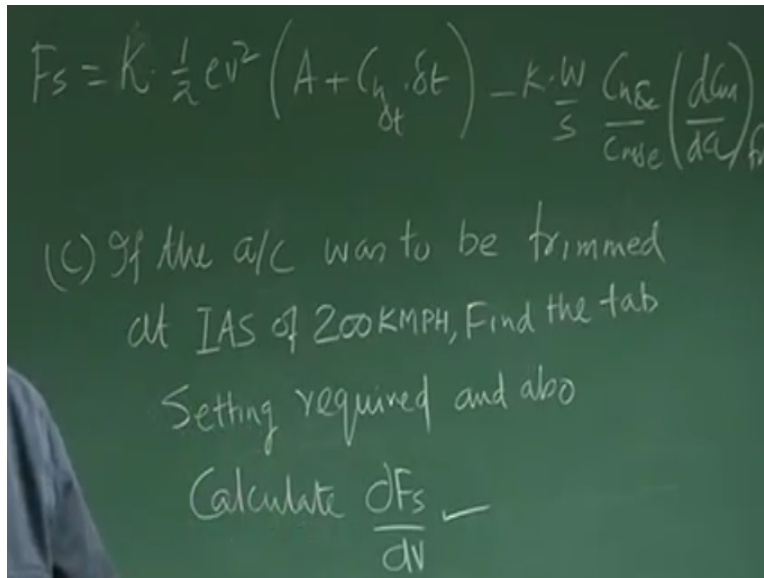 Fs = K · 1/2 ρv² (A + Chδt · δt) − K · W/S Chδe/Cmδe (dCm/dCL)fr
(C) If the a/c was to be trimmed
at IAS of 200 KMPH, Find the tab
Setting required and also
Calculate dFs/dv ✓